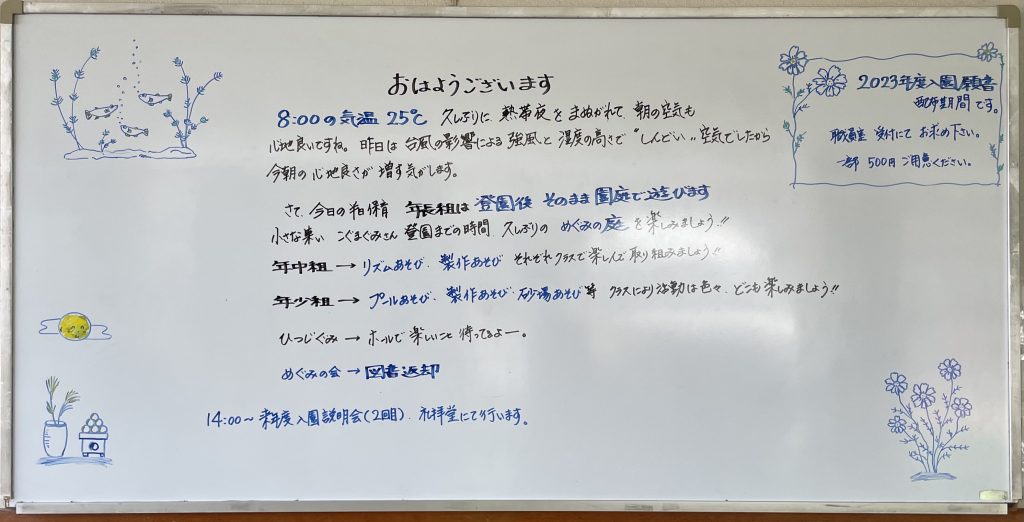 おはようございます
8:00の気温 25℃ 久しぶりに 熱帯夜を まぬがれて 朝の空気も
心地良いですね。昨日は 台風の影響による 強風と 湿度の高さで "しんどい" 空気でしたから
今朝の 心地良さが 増す気がします。
さて、今日の 保育 年長組は 登園後 そのまま 園庭で遊びます
小さな集い こぐまぐみさん 登園までの時間 久しぶりの めぐみの庭を楽しみましょう!!
年中組 → リズムあそび、製作あそび それぞれクラスで楽しんで取り組みましょう!!
年少組 → プールあそび、製作あそび・砂場あそび等 クラスにより活動は色々、どこも楽しみましょう!!
ひつじぐみ → ホールで 楽しいこと 待ってるよー。
めぐみの会 → 図書返却
14:00〜 来年度入園説明会(2回目)、礼拝堂にて行います。
2023年度入園願書
配布期間です。
職員室 受付にて お求め下さい。
一部 500円 ご用意ください。